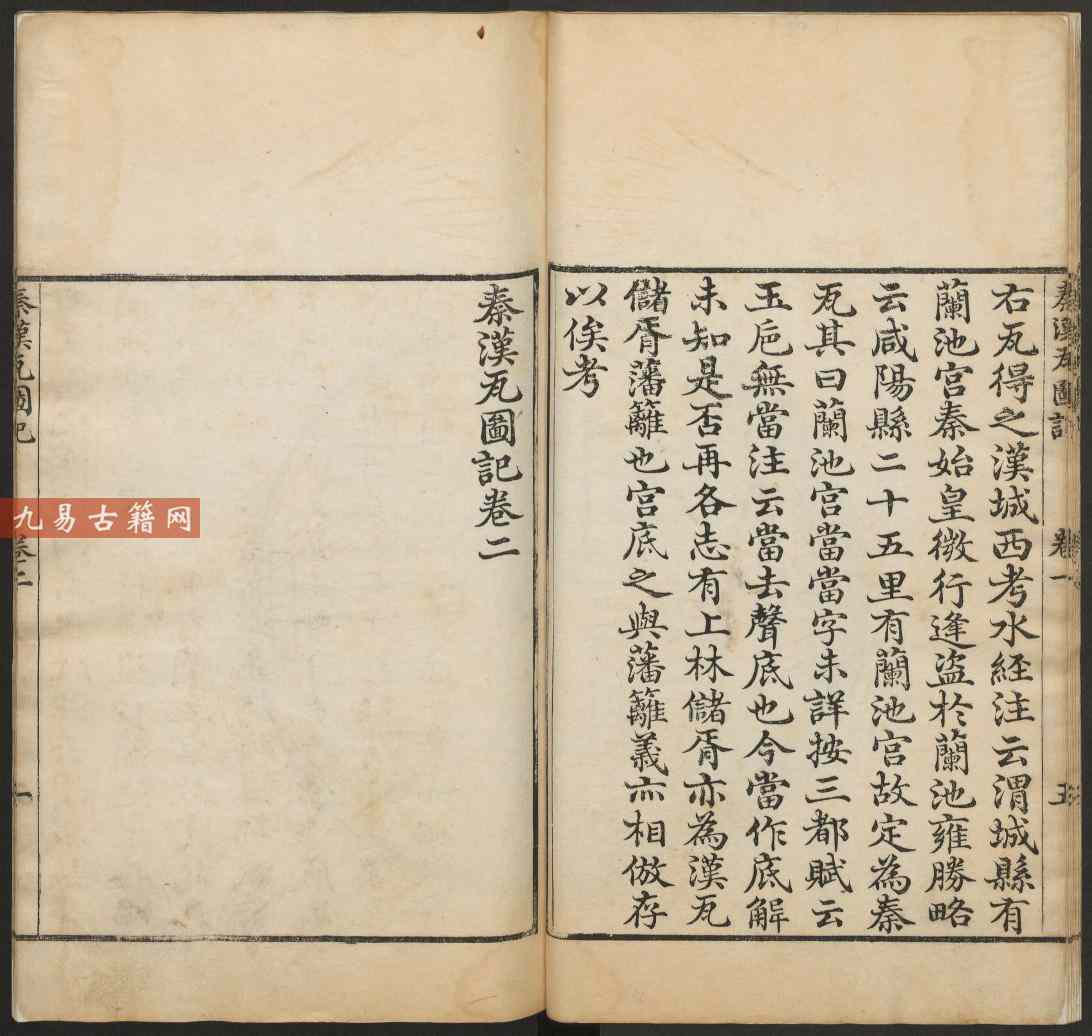 秦漢瓦圖記
卷一
五
右瓦得之漢城西考水經注云渭城縣有
蘭池宮秦始皇微行逢盜於蘭池雍勝略
云咸陽縣二十五里有蘭池宮故定為秦
瓦其曰蘭池宮當當字未詳按三都賦云
玉卮無當注云當去聲底也今當作底解
未知是否再各志有上林儲胥亦為漢瓦
儲胥藩籬也宮底之與藩籬義亦相倣存
以俟考
秦漢瓦圖記卷二
秦漢瓦圖記
卷二
一
九易古籍网